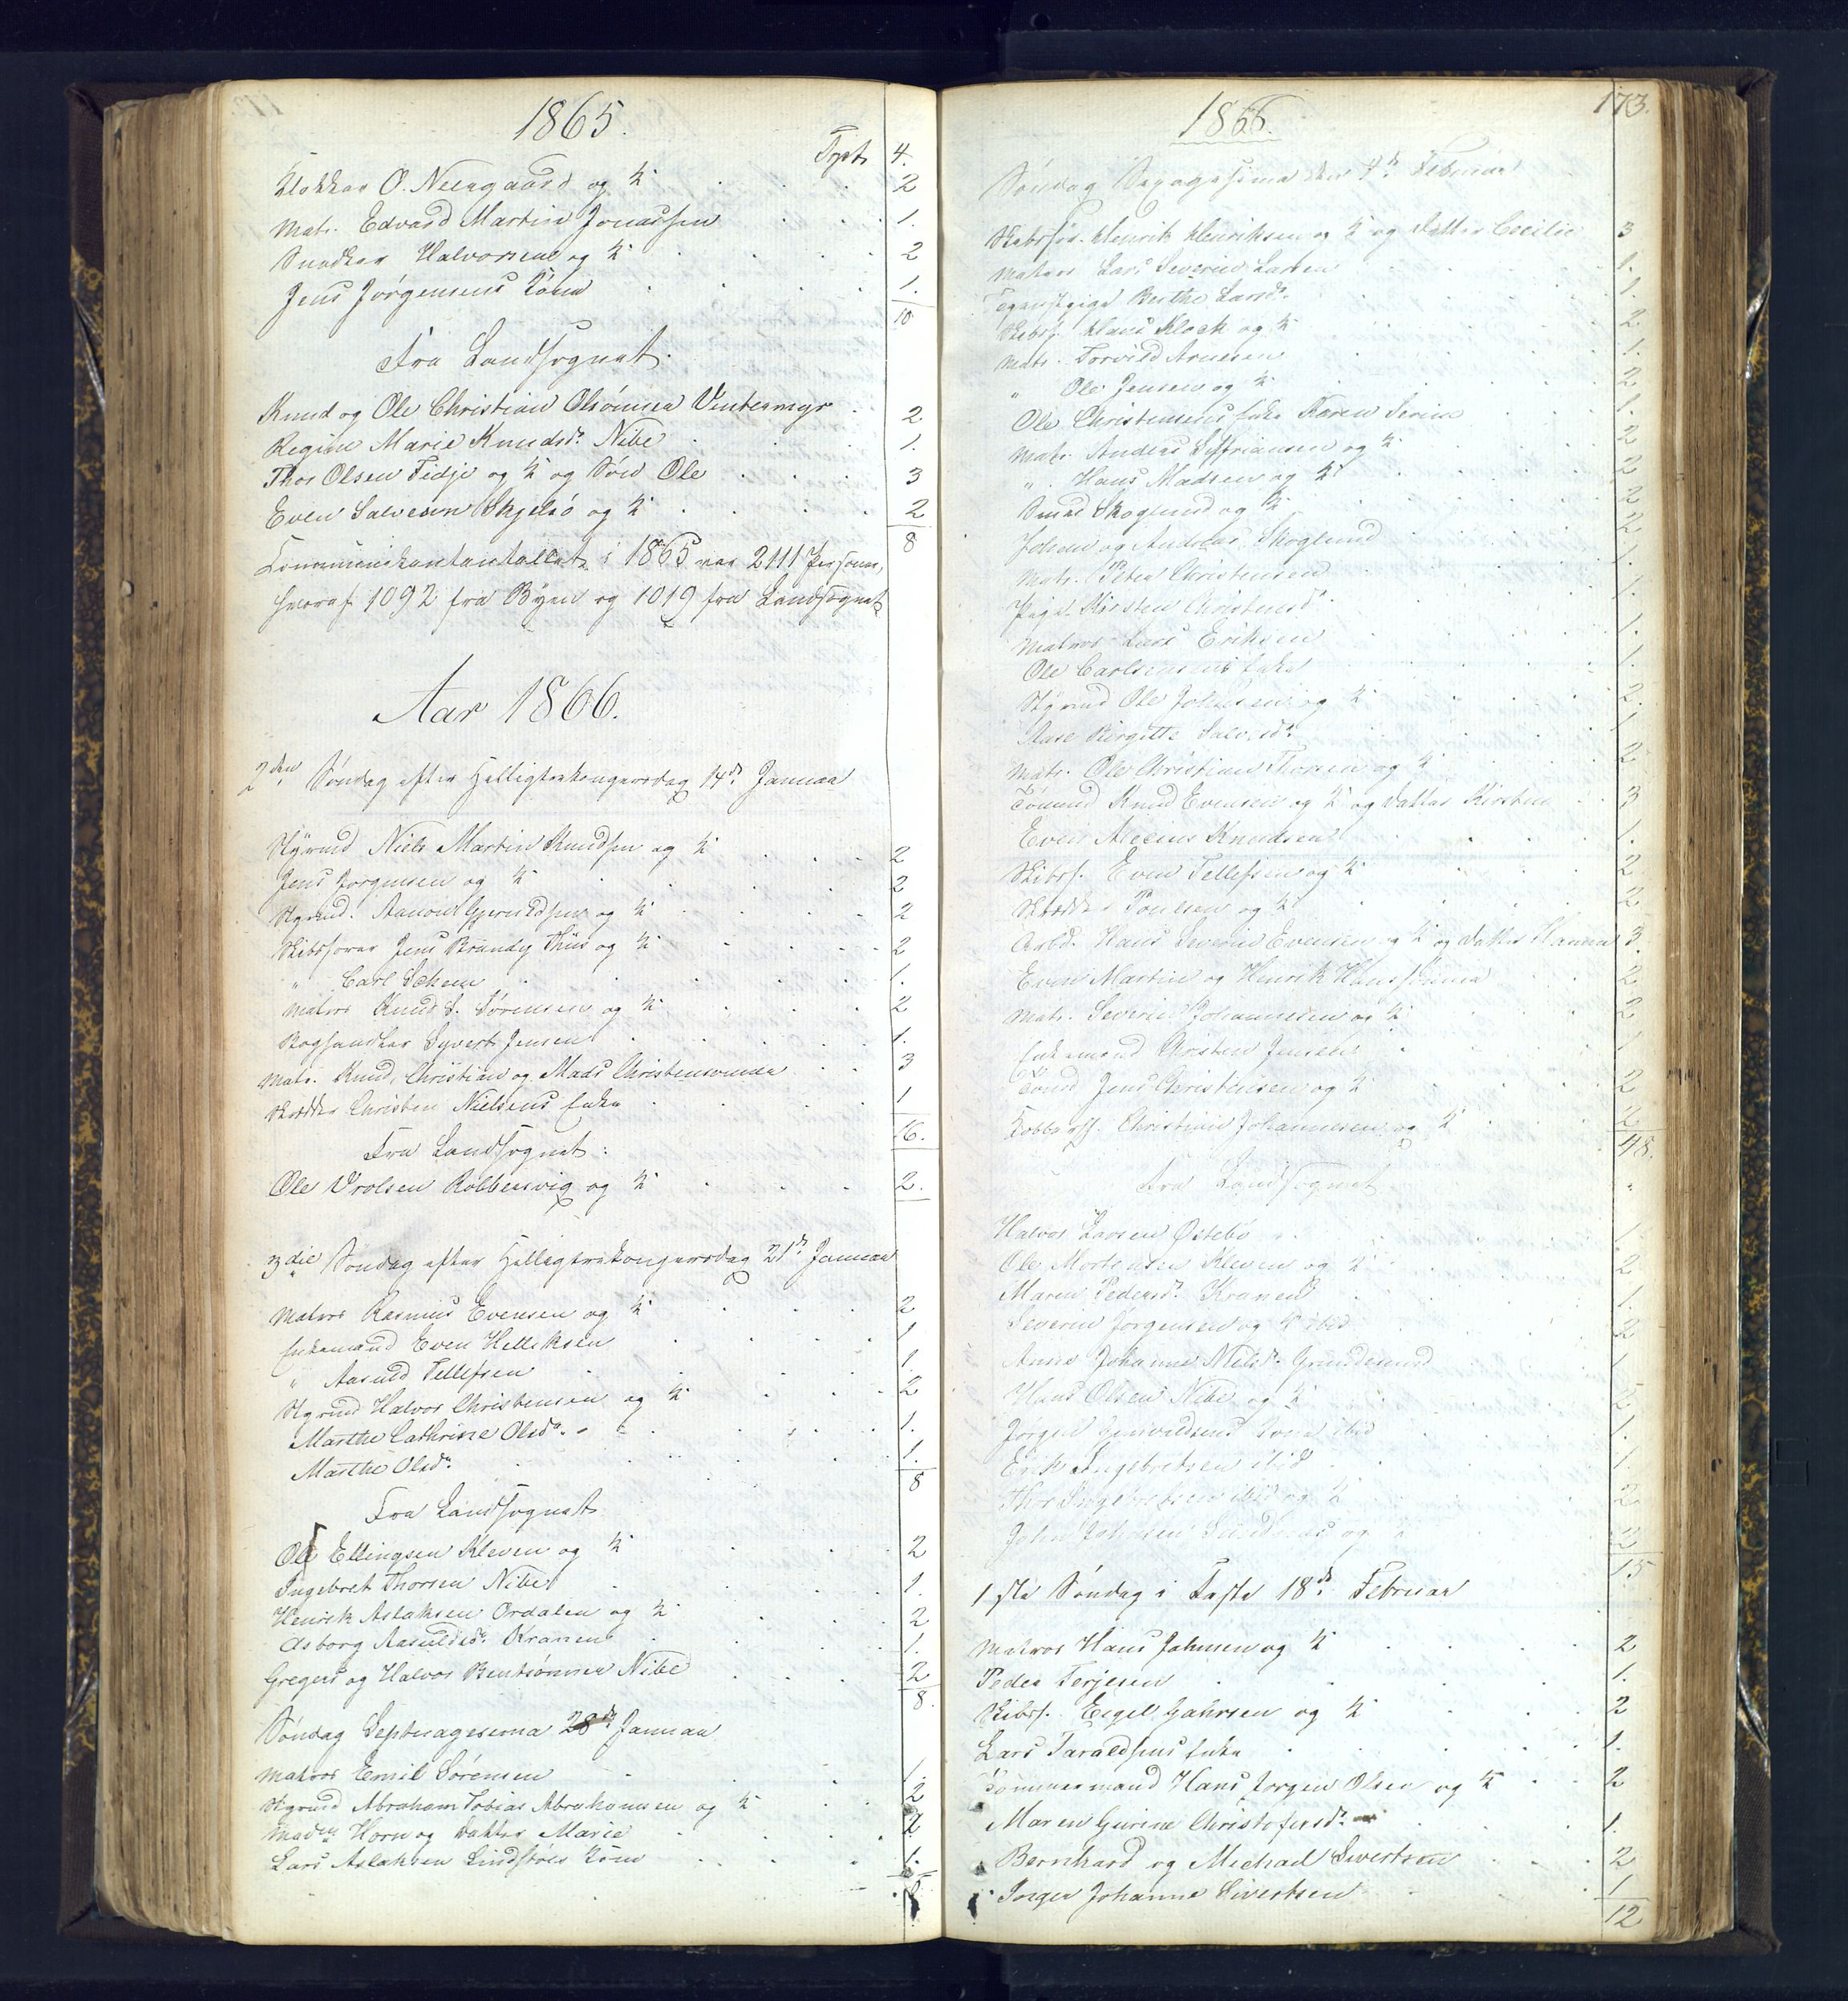 1865.
Tpt. 4.
Klokker O. Neergaard og K. 2
Matr. Edvard Martin Jonassen 1.
Snedker Halvorsen og K. 2
Jens Jörgensens Kone 1.
10
Fra Landsognet.
Knud og Ole Christian Olsönner Vintermyr 2
Regine Marie Knudsdr. Nibe 1.
Thor Olsen Fidje og K. og Sön Ole 3
Even Salvesen Skjelsö og K. 2
8
Communicantantallet i 1865 var 2111 Personer,
hvoraf 1092 fra Byen og 1019 fra Landsognet
Aar 1866.
2den Söndag efter Helligtrekongersdag 14de Januar
Styrmd Niels Martin Knudsen og K. 2
Jens Jorgensen og K. 2
Styrmd. Aanon Gjeruldsen og K. 2
Skibsförer Jens Brandy Thiis og K. 2
" Carl Schem 1.
Matros Knud S. Sörensen og K. 2
Boghandler Syvert Jensen 1.
Matr. Knud, Christian og Mads Christensønner 3
Skrædder Christen Nielsens Enke 1
16.
Fra Landsognet:
Ole Vrolsen Robbersvig og K. 2.
3die Söndag efter Helligtrekongersdag 21de Januar
Matros Rasmus Evensen og K. 2
Enkemand Even Helliksen 1
" Aasuld Tellefsen 1.
Styrmd Halvor Christensen og K. 2
Marthe Cathrine Olsdr. 1.
Marthe Olsdr. 1.
8
Fra Landsognet
Ole Ellingsen Kleven og K. 2
Ingebret Thorsen Nibe 1.
Henrik Aslaksen Ordalen og K. 2
Asborg Aasuldsdr. Kranen 1.
Gregers og Halvor Bentsönner Nibe 2
8.
Söndag Septuagesima 28de Januar
Matros Emil Sörensen 1.
Styrmd Abraham Tobias Abrahamsen og K. 2
Madm Horn og Datter Marie 2
Lars Aslaksen Lindstöls Kone 1.
1866.
173.
Söndag Sexagesima den 4de Februar
Skibsför. Henrik Henriksen og K. og Datter Cecilie 3
Matros Lars Severin Larsen 1.
Berthe Larsdr. 1.
Skibsf. Hans Klock og K. 2.
Matr. Torvild Arnesen 1.
" Ole Jensen og K. 2
Ole Christensens Enke Karen Serine 1.
Matr. Andreas Siffriansen og K. 2
" Hans Madsen og K. 2
Smed Skoglund og K. 2
Johan og Andreas Skoglund 2
Matr. Peter Christensen 1.
Pige Kirsten Christensdr. 1.
Matros Lars Eriksen 1.
Ole Carlsens Enke 1.
Styrmd Ole Johnsen og K. 2.
Aase Birgitte Salvesdr. 1
Matr. Ole Christian Thorsen og K. 2
Tömmd Knud Evensen og K. og Datter Kirsten 3
Even Alexius Knudsen 1.
Skibsf. Even Tellefsen og K. 2
Skrædder Poulsen og K. 2
Arbd. Hans Severin Evensen og K. og Datter Hanna 3.
Even Martin og Henrik Hanssönner 2
Matr. Severin Johannesen og K. 2
Enkemand Christen Jensen 1
Tömd Jens Christensen og K. 2
Christian Johannesen og K. 2
48.
Fra Landsognet
Halvor Larsen Östebö 1.
Ole Mortensen Kleven og K. 2
Maren Pedersdr. Kranen 1.
Severin Jörgensen og K. ibid 2
Anne Johanne Nielsdr. Grundesund 1
Hans Olsen Nibe og K. 2
Jörgen Gunvaldsens Kone ibid 1.
Erik Ingebretsen ibid 1.
Thor Ingebretsen ibid og K. 2
John Johnsen og K. 2
15
1ste Söndag i Faste 18de Februar
Matros Hans Johnsen og K. 2
Peder Terjesen 1.
Skibsf. Eigel Gahrsen og K. 2
Lars Taraldsens Enke 1.
Tömmermand Hans Jörgen Olsen og K. 2
Maren Gurine Christofersdr. 1.
Bernhard og Michael Sivertsen 2
Inger Johanne Sivertsen 1
12